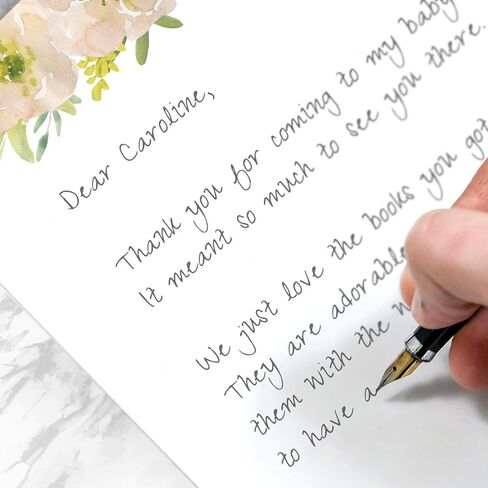 Dear Caroline,
Thank you for coming to my baby
It meant so much to see you there.
We just love the books you got
They are adorable
them with the
to have a